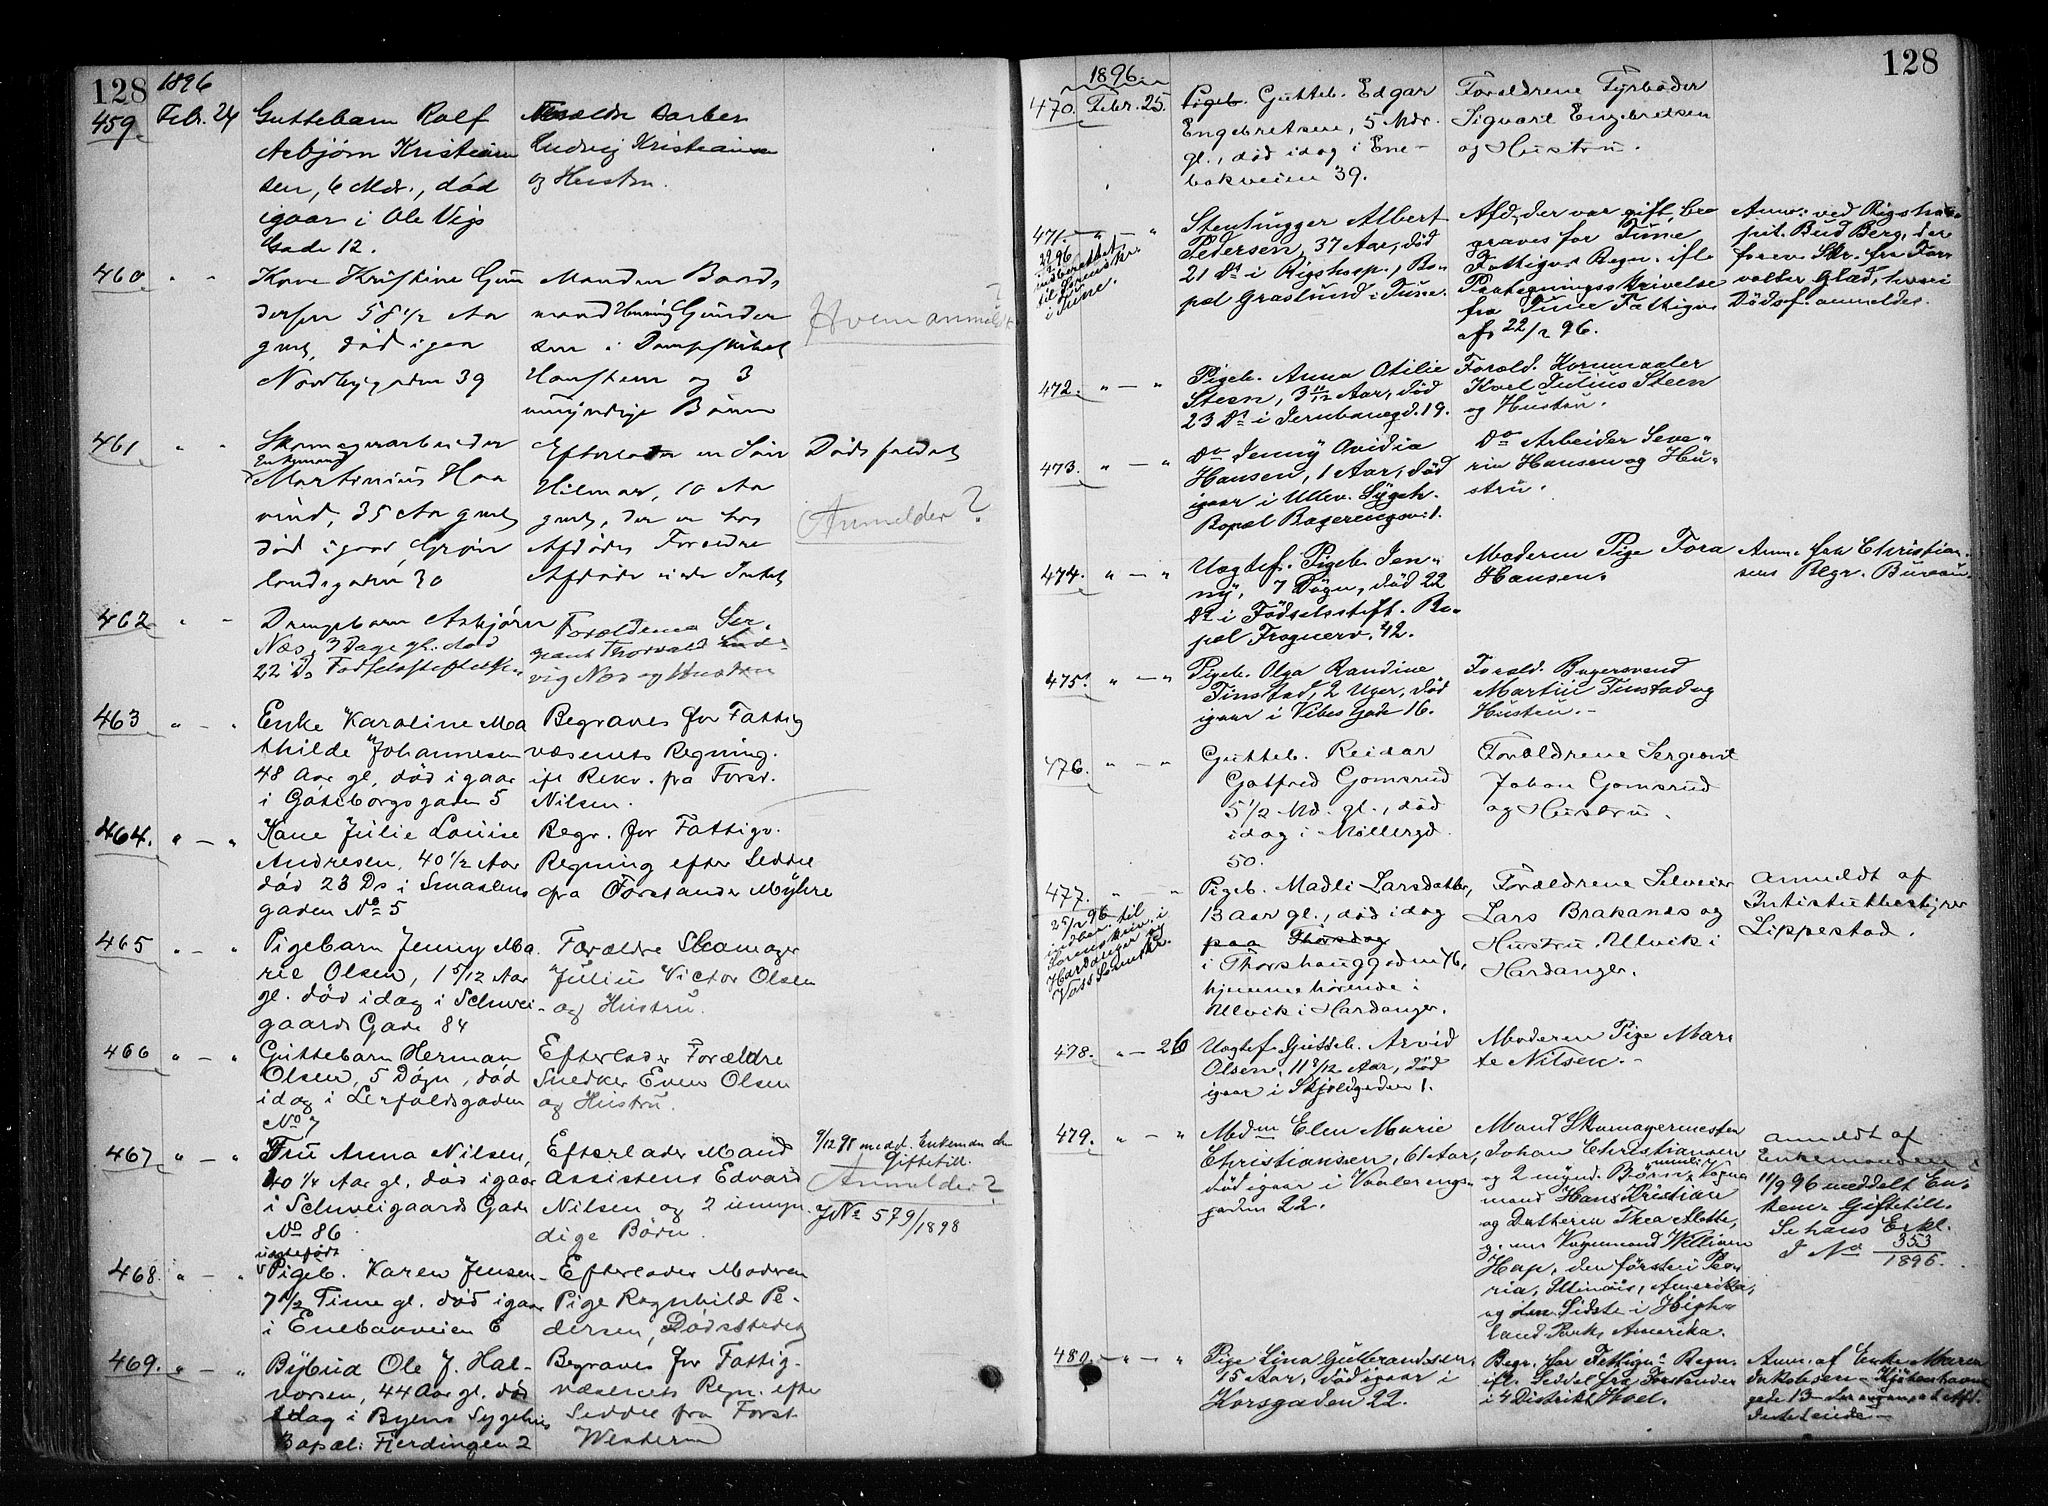 128
1896
459 Febr. 24
Guttebarn Rolf
Asbjørn Kristian
sen, 6 Mdr., død
igaar i Ole Vigs
Gade 12.
Forældre Barber
Ludvig Kristiansen
og Hustru.
460 " "
Kone Kristine Gun
dersen 58 1/2 Aar
gml, død igaar
Nordbygaden 39
Manden Baads
mand Henning Gunder
sen i Dampskibet
Hansteen og 3
umyndige Børn
Hvem anmeldt?
461 " "
Skomagerarbeider
Enkemand
Martinius Haa
vind, 35 Aar gml
død igaar Grøn
landsgaden 30
Efterlader en Søn
Hilmar, 10 Aar
gml, der er hos
Afdødes Forældre
Afdøde eiede Intet
Dødsfaldet
Anmelder?
462 " "
Drengebarn Asbjørn
Næs, 3 Dage gl. død
22 Ds Fødselsstiftelse
Forældrene Ser-
geant Thorvald Lud-
vig Næs og Hustru
463 " - "
Enke Karoline Ma
thilde Johannesen
48 Aar gl, død igaar
i Gøteborgsgaden 5
Begraves for Fattig
væsenets Regning.
ifl Rekv. fra Forst.
Nilsen.
464. " - "
Kone Julie Louise
Andresen, 40 1/2 Aar
død 23 Ds i Smaalens
gaden No 5
Begr. for Fattigv.
Regning efter Seddel
fra Forstander Myhre
465 " - "
Pigebarn Jenny Ma
rie Olsen, 1 5/12 Aar
gl. død idag i Schwei-
gaards Gade 84
Forældre Skomager
Julius Victor Olsen
og Hustru.
466 " - "
Guttebarn Herman
Olsen, 5 Døgn, død
idag i Lerfaldsgaden
No 7
Efterlader Forældre
Snedker Even Olsen
og Hustru.
467 " - "
Fru Anna Nilsen,
40 1/4 Aar gl, død igaar
i Schweigaards Gade
No 86
Efterlader Mand
Assistent Edvard
Nilsen og 2 umyn
dige Børn.
9/12 98 meddel. Enkemanden
Giftetill.
Anmelder?
J No 579/1898
468. " - "
uægtefødt
Pigeb. Karen Jensen
7 1/2 Time gl. død igaar
i Enebakveien 6
Efterlader Moderen
Pige Ragnhild Pe-
dersen, Dødsstedet
469. " - "
Bybud Ole J. Hal-
vorsen, 44 Aar gl. død
idag i Byens Sygehus
Bopæl: Fjerdingen 2
Begraves for Fattig-
væsenets Regn. efter
Seddel fra Forst.
Western
128
1896
470. Febr. 25.
Pigeb. Gutteb. Edgar
Engebretsen, 5 Mdr.
gl., død idag i Ene-
bakveien 39.
Forældrene Fyrbøder
Sigvart Engebretsen
og Hustru.
471. " - "
29/2 96
indberettet
til Sorenskr.
i Tune.
Stenhugger Albert
Pedersen, 37 Aar, død
21 Ds i Rigshosp., Bo-
pæl Graslund i Tune.
Afd, der var gift, be-
graves for Tune
Fattigvs Regn. ifle
Paategningsskrivelse
fra Tune Fattigv.
af 22/2 96.
Anm: ved Rigshos-
pit. Bud Berg, der
forev. Skr. fra For
valter Glad, hvori
Dødsf. anmeldes.
472. " - "
Pigeb. Anna Otilie
Steen, 3 11/12 Aar, død
23 Ds i Jernbanegd. 19.
Foræld. Kornmaaler
Karl Julius Steen
og Hustru.
473. " - "
Do Jenny Ovidia
Hansen, 1 Aar, død
igaar i Ullev. Sygeh.
Bopæl Bagerengsv. 1.
Do Arbeider Seve-
rin Hansen og Hu-
stru.
474. " - "
Uægtef. Pigeb. Jen-
ny, 7 Døgn, død 22
Ds i Fødselsstift. Bo-
pæl Frognerv. 42.
Moderen Pige Tora
Hansen.
Anm. fra Christian-
sens Begr. Bureau.
475. " - "
Pigeb. Olga Randine
Finstad, 2 Uger, død
igaar i Vibes Gade 16.
Foræld. Bagersvend
Martin Finstad og
Hustru. -
476. " - "
Gutteb. Reidar
Gotfred Gomsrud
5 1/2 Md. gl., død
idag i Møllergd.
50.
Forældrene Sergeant
Johan Gomsrud
og Hustru.
477. " - "
25/2 96 til
indber. til
Sorenskriv. i
Hardanger og
Voss Sorenskr.
Pigeb. Madli Larsdatter,
13 Aar gl., død idag
paa Thorsdag
i Thorshauggaden 16,
hjemmehørende i
Ulvik i Hardanger.
Forældrene Selveier
Lars Brakanes og
Hustru, Ulvik i
Hardanger.
Anmeldt af
Intistutbestyrer
Lippestad.
478. " - 26
Uægtef Gutteb. Arvid
Olsen, 11 9/12 Aar, død
igaar i Skjoldgaden 1.
Moderen Pige Mar
te Nilsen. -
479. " - "
Mdm Elen Marie
Christiansen, 61 Aar,
død igaar i Vaalerengs
gaden 22.
Mand Skomagermester
Johan Christiansen
og 2 mynd. Børn,
mand Hans Kristian
og Datteren Thea Mette,
g. m. Vognmand William
Hap, den første i Peo-
ria, Illinois, Amerika,
og den Sidste i High-
land Park, Amerika.
Anmeldt af
Enkemanden
11/9 96 meddelt En-
kem. Giftetill.
Se hans Erkl.
J No 353
1896.
480. " - "
Pige Lina Gulbrandsen,
15 Aar, død igaar i
Korsgaden 22.
Begr. for Fattigvs Regn.
ifl. Seddel fra Forstander
i 4 Distrikt Hoel.
Anm. af Enke Maren
Jakobsen - Kjøbenhavns
gade 13 der opgav, at Afd.
Intet eiede. -